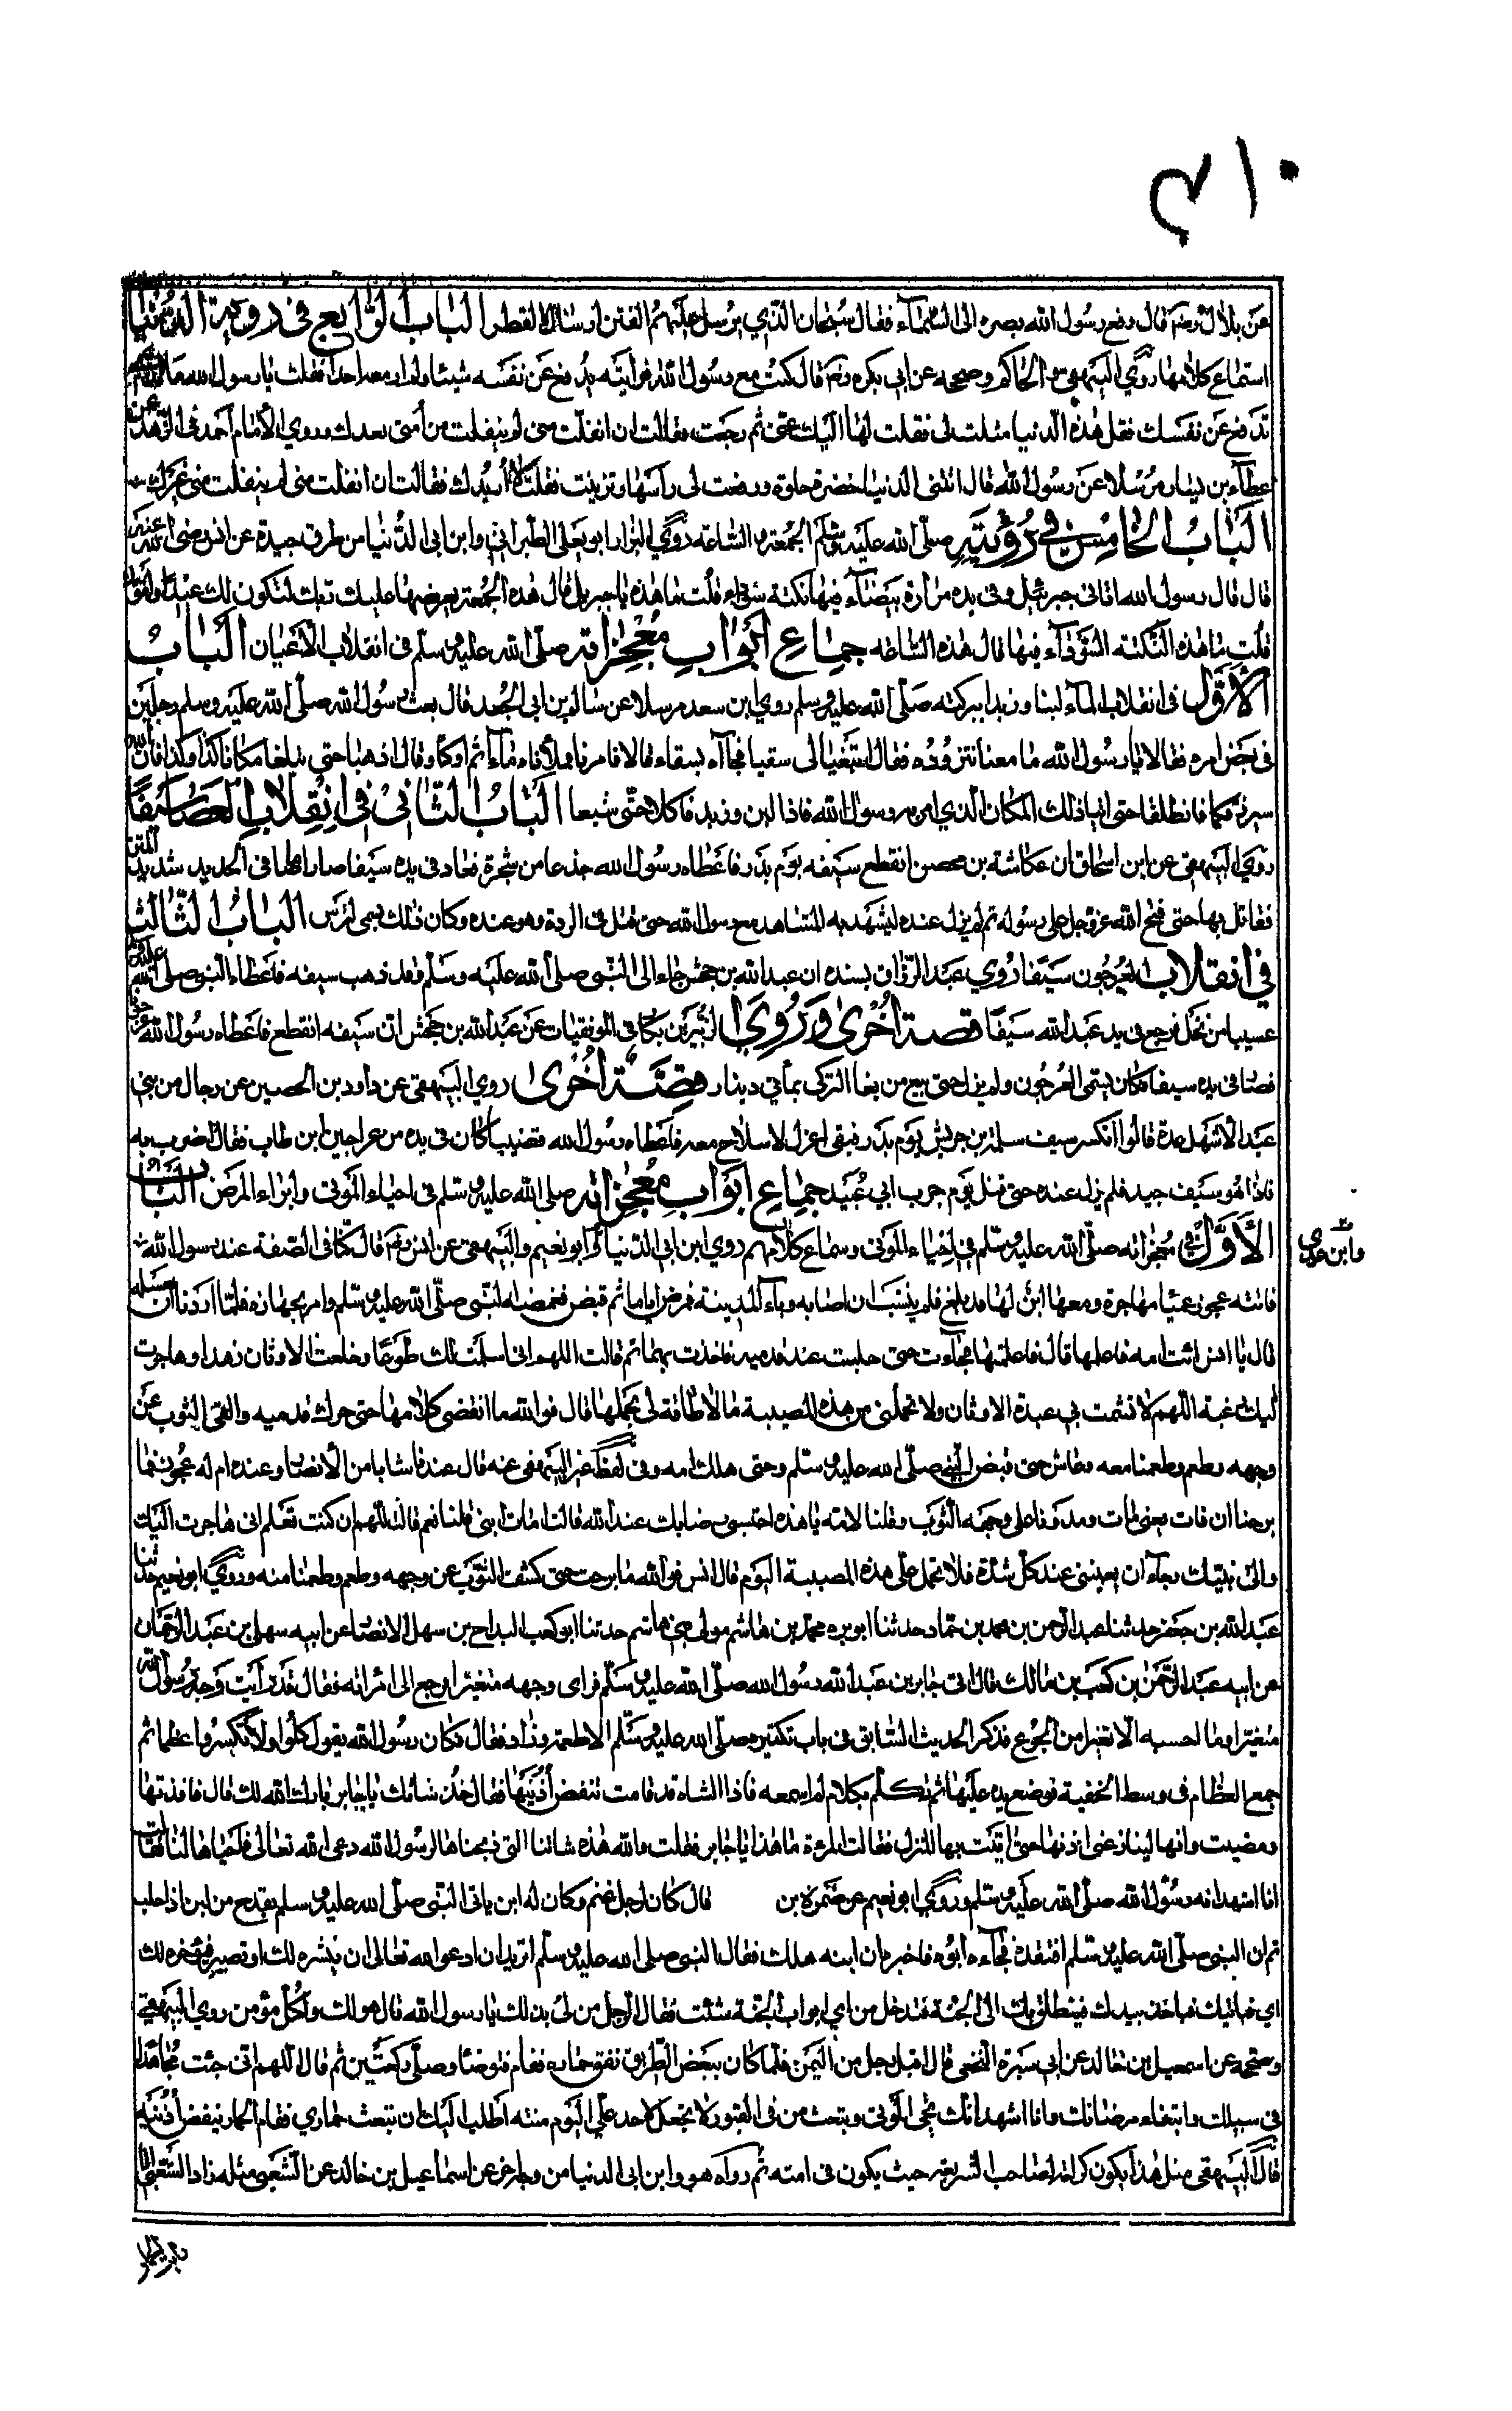 ٣١٠
عن بلال رضم قال رفع رسول الله بصره الى السماء فقال سبحان الذي يرسل عليهم الفتن ارسال القطر الباب الرابع في رويته الدنيا
استماع كلامها روي البيهقي والحاكم وصححه عن ابي بكره رضم قال كنت مع رسول الله فرايته يدفع عن نفسه شيئا ولم ار معه احدا فقلت يا رسول الله ما الذي
تدفع عن نفسك فقل هذه الدنيا مثلت لى فقلت لها اليك عنى ثم رجعت فقالت ان انفلت منى لم ينفلت من أمتى بعدك وروي الأمام أحمد فى الزهد عن
عطاء بن يسار مرسلا عن رسول الله قال اتتنى الدنيا خضرة حلوة ورفعت لى رأسها وتزينت فقلت لا أريدك فقالت ان انفلت منى لم ينفلت منى غيرك
الباب الخامس في رؤيته صلى الله عليه وسلم الجمعة و الساعة روي البزار ابو يعلى الطبراني وابن ابى الدنيا من طرق جيدة عن انس رضى الله عنه
قال قال رسول الله اتانى جبرئيل وفى يده مرآة بيضاء فيها نكتة سوداء قلت ما هذه يا جبريل قال هذه الجمعة يعرضها عليك ربك لتكون لك عيدا ولقومك
قلت ما هذه النكتة السوداء فيها قال هذه الساعة جماع ابواب معجزاته صلى الله عليه وسلم فى انقلاب الاعيان الباب
الأول فى انقلاب الماء لبنا وزبدا ببركته صلى الله عليه وسلم روي ابن سعد مرسلا عن سالم بن ابى الجعد قال بعث رسول الله صلى الله عليه وسلم رجلين
فى بعض امره فقالا يا رسول الله ما معنا نتزوده فقال ابتغيا لى سقيا فجاآه بسقاء قالا فامرنا فملأناه ماء ثم اوكأه وقال اذهبا حتى تبلغا مكانا كذا وكذا فان الله
سيرزقكما فانطلقا حتى اتيا ذلك المكان الذي امرهم رسول الله فاذا لبن وزبد فاكلا حتى شبعا الباب الثاني في انقلاب العصا سيفا
روي البيهقى عن ابن اسحاق ان عكاشة بن محصن انقطع سيفه يوم بدر فاعطاه رسول الله جذعا من شجرة فعاد فى يده سيفا صارما صافى الحديد شديد المتن
فقاتل بها حتى فتح الله عز وجل على رسوله ثم لم يزل عنده يشهد به المشاهد مع رسول الله حتى قتل فى الردة وهو عنده وكان ذلك يسمى الباب الثالث
في انقلاب العرجون سيفا روي عبد الرزاق بسنده ان عبد الله بن جحش جاء الى النبى صلى الله عليه وسلم وقد ذهب سيفه فاعطاه النبى صلى الله عليه
عسيبا من نخل فرجع فى يد عبد الله سيفا قصة أخرى وروي الزبير بن بكا فى الموفقيات عن عبد الله بن جحش ان سيفه انقطع فاعطاه رسول الله عرجونا
فصار فى يده سيفا فكان يسمى العرجون ولم يزل حتى بيع من بغا التركى بمأتي دينار قصة أخرى روي البيهقى عن داود بن الحصين عن رجال من بنى
عبد الاشهل عدة قالوا انكسر سيف سلمة بن حريش يوم بدر فبقى اعزل لا سلاح معه فاعطاه رسول الله قضيبا كان فى يده من عراجين ابن طاب فقال اضرب به
فاذا هو سيف جيد فلم يزل عنده حتى قتل يوم جسر ابى عبيد جماع ابواب معجزاته صلى الله عليه وسلم فى احياء الموتى وابراء المرضى الباب
الأول في معجزاته صلى الله عليه وسلم في إحياء الموتى وسماع كلامهم روي ابن ابى الدنيا ابو نعيم والبيهقى عن انس رضم قال كنا فى الصفة عند رسول الله
وابن عدى
فاتته عجوز عمياء مهاجرة ومعها ابن لها قد بلغ فلم يلبث ان اصابه وباء المدينة فمرض اياما ثم قبض فغمضه النبى صلى الله عليه وسلم وامر بجهازه فلما اردنا ان نغسله
قال يا انس ائت امه فاعلمها قال فاعلمتها فجاءت حتى جلست عند قدميه فاخذت بهما ثم قالت اللهم انى اسلمت لك طوعا وخلعت الاوثان زهدا وهاجرت
اليك رغبة اللهم لا تشمت بي عبدة الاوثان ولا تحملنى من هذه المصيبة ما لا طاقة لى بحملها قال فوالله ما انقضى كلامها حتى حرك قدميه والقى الثوب عن
وجهه وطعم وطعمنا معه وعاش حتى قبض النبى صلى الله عليه وسلم وحتى هلكت امه وفى لفظ عن البيهقى عنه قال عدنا شابا من الأنصار وعنده ام له عجوز فما
برحنا ان فات يعنى مات ومددنا على وجهه الثوب وقلنا لامه يا هذه احتسبى مصابك عند الله قالت امات ابنى قلنا نعم قالت اللهم ان كنت تعلم انى هاجرت اليك
والى نبيك رجاء ان يعيننى عند كل شدة فلا تحمل على هذه المصيبة اليوم قال انس فوالله ما برحت حتى كشف الثوب عن وجهه وطعم وطعمنا منه وروي ابو نعيم حدثنا
عبد الله بن جعفر حدثنا عبد الرحمن بن محمد بن حماد حدثنا ابو بره محمد بن هاشم مولى بنى هاشم حدثنا ابو كعب البداح بن سهل الانصار عن ابيه سهل بن عبد الرحمان
عن ابيه عبد الرحمن بن كعب بن مالك قال اتى جابر بن عبد الله رسول الله صلى الله عليه وسلم فراى وجهه متغيرا رجع الى امراته فقال قد رأيت وجه رسول الله
متغيرا وما احسبه الا تغير من الجوع فذكر الحديث السابق فى باب تكثيره صلى الله عليه وسلم الاطعمة وزاد فقال فكان رسول الله يقول كلوا ولا تكسروا عظما ثم
جمع العظام فى وسط الجفنة فوضع يده عليها ثم تكلم بكلام لم اسمعه فاذا الشاة قد قامت تنفض أذنيها فقال خذ شاتك يا جابر بارك الله لك قال فاخذتها
ومضيت وانها لتنازعنى اذنها حتى اتيت بها المنزل فقالت المرءة ما هذا يا جابر فقلت والله هذه شاتنا التى ذبحناها لرسول الله دعى الله تعالى فاحياها لنا فقالت
انا اشهد انه رسول الله صلى الله عليه وسلم وروي ابو نعيم عن ضمرة بن قال كان لرجل غنم وكان له ابن ياتى النبى صلى الله عليه وسلم بقدح من لبن اذا حلب
ثم ان النبى صلى الله عليه وسلم افتقده فجاءه ابوه فاخبره ان ابنه هلك فقال النبى صلى الله عليه وسلم اتريد ان ادعو الله تعالى ان ينشره لك او تصبر فيؤخره لك
اي فياتيك فياخذ بيدك فينطلق بك الى الجنة فتدخل من اي ابواب الجنة شئت فقال الرجل من لى بذلك يا رسول الله قال هو لك ولكل مؤمن روي البيهقى
وصححه عن اسمعيل بن خالد عن ابى سبرة النخعى قال اقبل رجل من اليمن فلما كان ببعض الطريق نفق حماره فقام فتوضا وصلى ركعتين ثم قال اللهم انى جئت مجاهدا
فى سبيلك وابتغاء مرضاتك وانا اشهد انك تحي الموتى وتبعث من فى القبور لا تجعل لاحد على اليوم منته اطلب اليك ان تبعث حماري فقام الحمار ينفض أذنيه
قال البيهقى مثل هذا يكون كرامة لصاحب الشريعة حيث يكون فى امته ثم رواه هو وابن ابى الدنيا من وجه اخر عن اسماعيل بن خالد عن الشعبى مثله زاد الشعبى انا